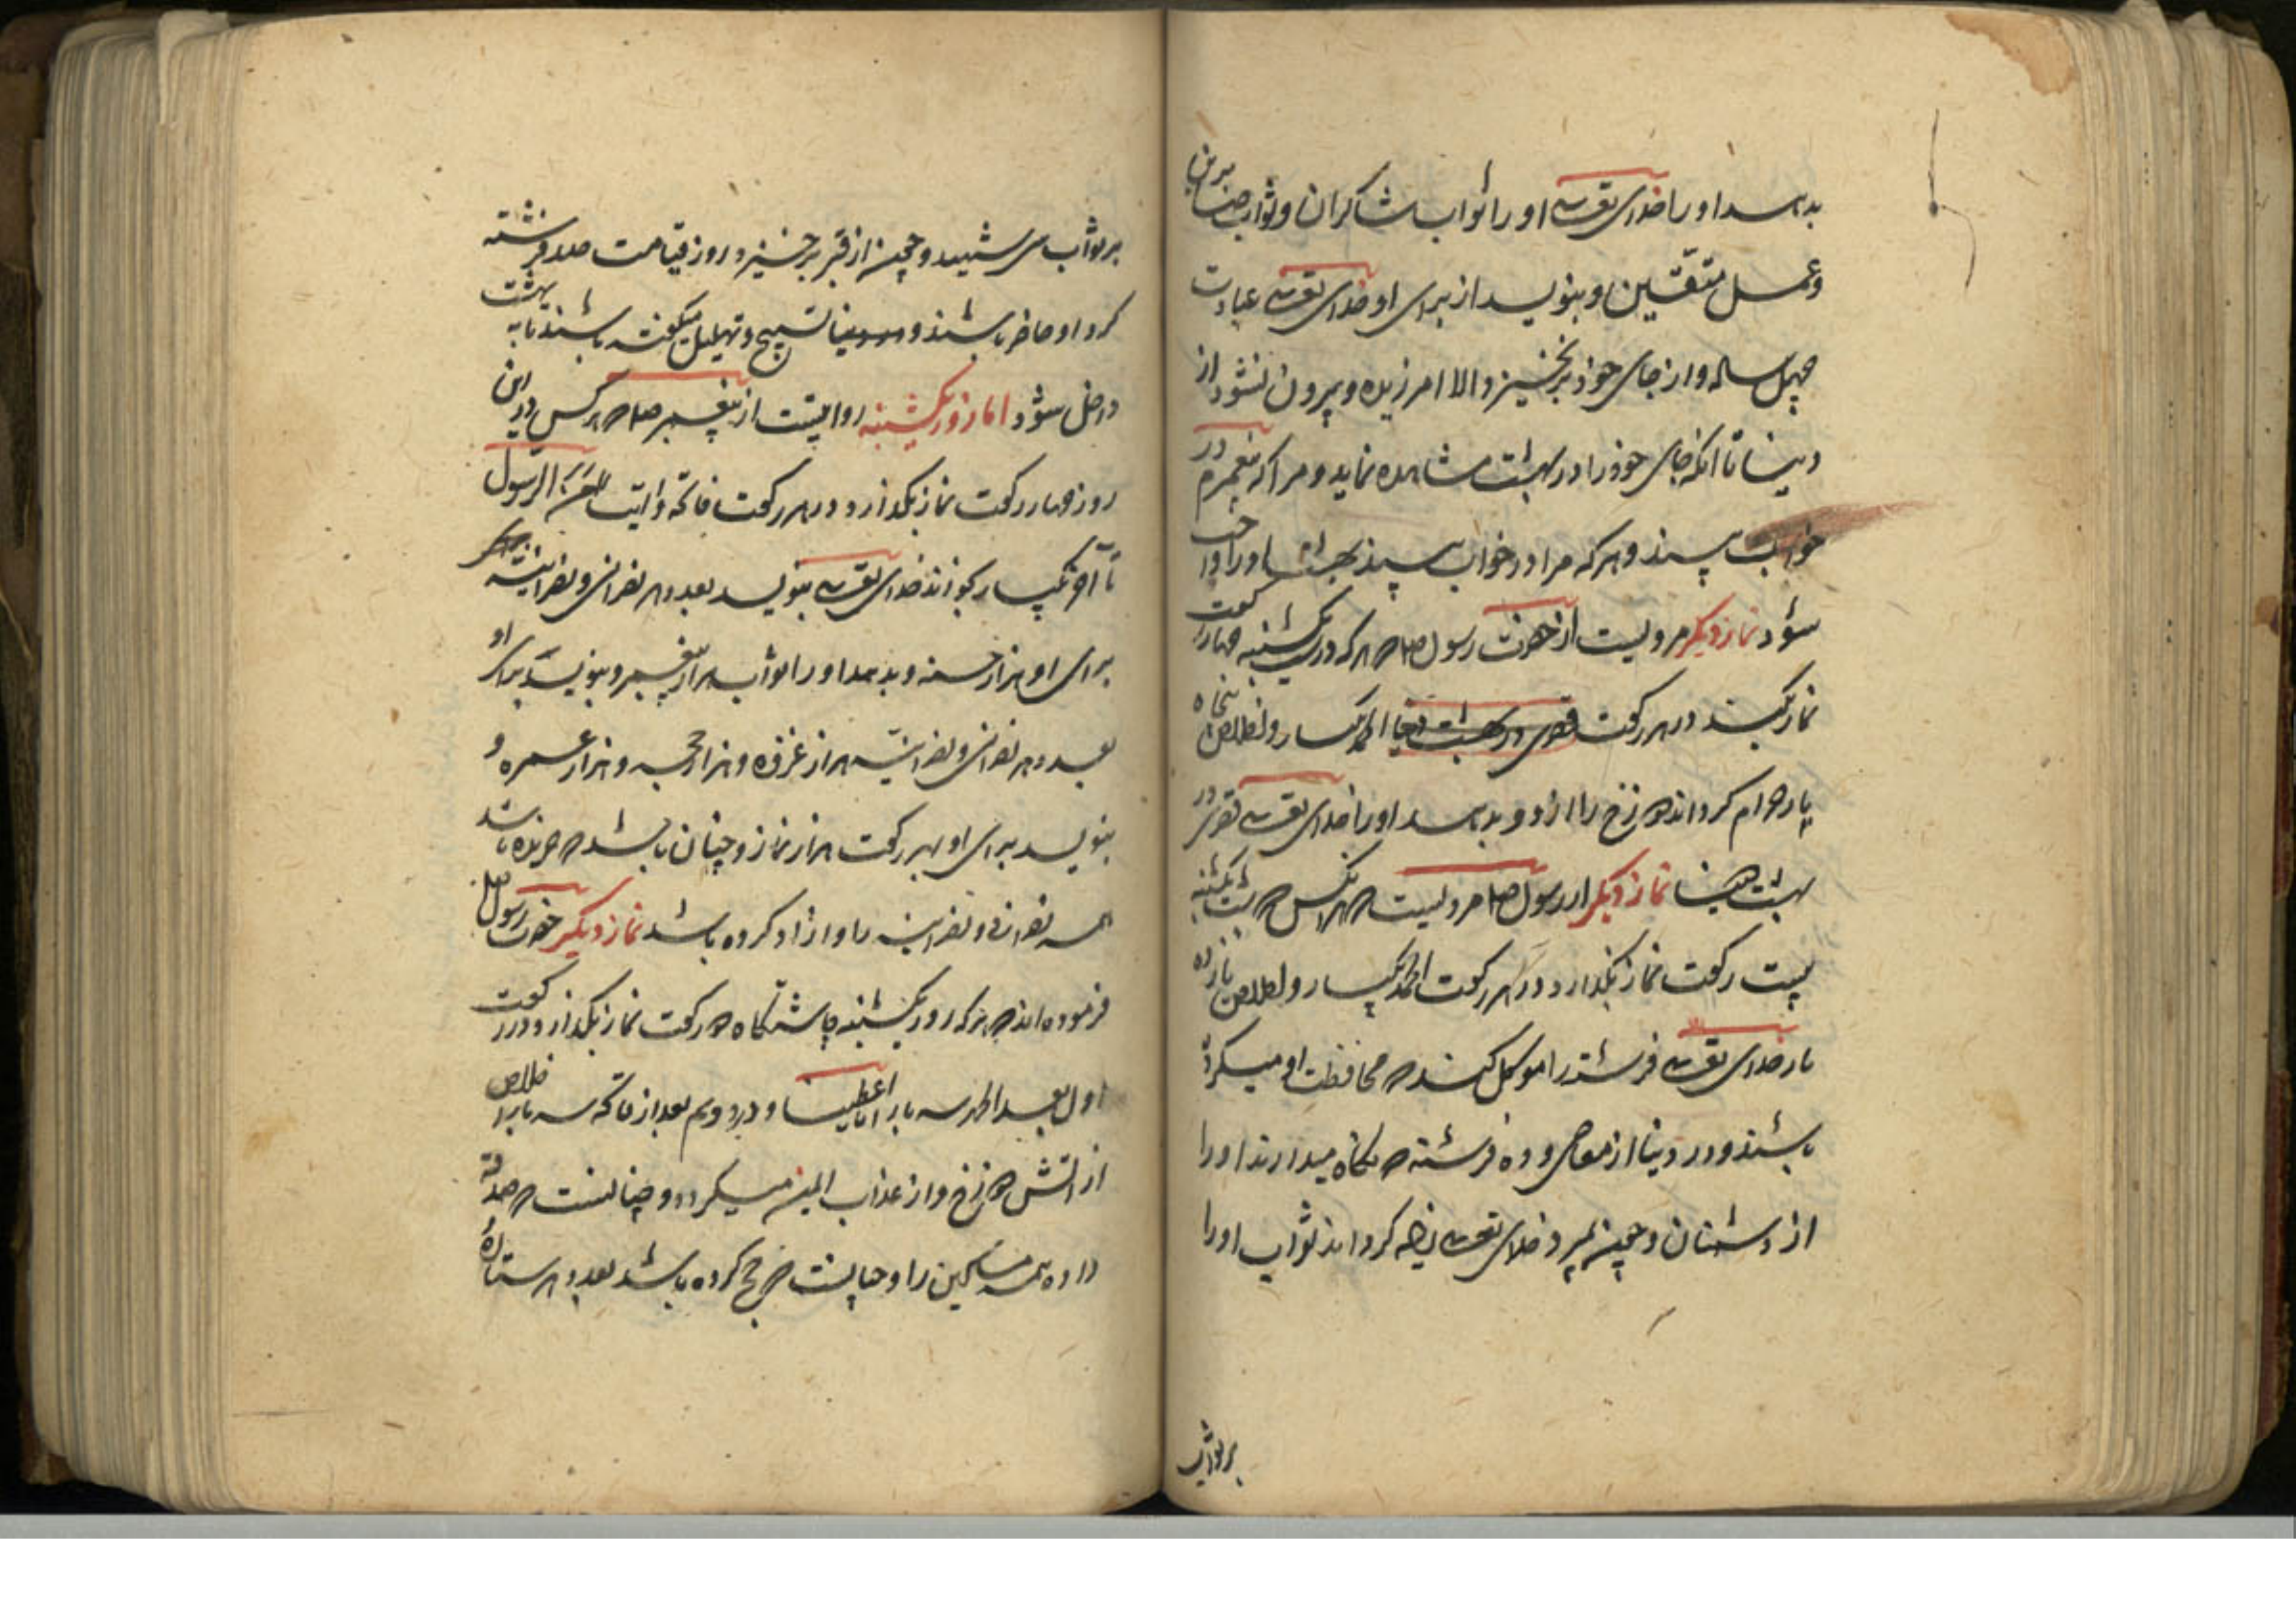 بدهد او را خدای تعالی او را ثواب شاکران و ثواب صابرین
و عمل متقین و بنویسد از برای او خدای تعالی عبادت
چهل ساله و از جای خود برنخیزد الا امرزیده و بیرون نشود از
دنیا تا انکه جای خود را در بهشت مشاهده نماید و مرا که پیغمبرم در
خواب بیند و هرکه مرا در خواب بیند بهشت او را واجب
شود نماز دیگر مرویست از حضرت رسول هرکه در یکشنبه چهار رکعت
نماز کند در هر رکعت الحمد یکبار و اخلاص پنجاه
بار حرام کرداند دوزخ را از او و بدهد او را خدای تعالی قصری در
بهشت نماز دیگر از رسول مرویست هر انکس شب یکشنبه
بیست رکعت نماز بکذارد و در هر رکعت الحمد یکبار و اخلاص پانزده
بار خدای تعالی فرشته را موکل کند محافظت او میکرده
باشند و در دنیا از معاصی و ده فرشته نکاه میدارند او را
از دشمنان و چون بمیرد خدای تعالی کرداند ثواب او را
بر ثواب
بر ثواب شهید و چون از قبر برخیزد روز قیامت صد فرشته
کرد او حاضر باشند و تسبیح و تهلیل میکفته باشند تا به بهشت
داخل شود اما روز یکشنبه روایتست از پیغمبر هرکس در این
روز چهار رکعت نماز بکذارد و در هر رکعت فاتحه و ایت امن الرسول
تا اخر یکبار بخواند خدای تعالی بنویسد بعدد هر نصرانی و نصرانیه
برای او هزار حسنه و بدهد او را ثواب هزار پیغمبر و بنویسد برای او
بعدد هر نصرانی و نصرانیه هزار غزوه و هزار حجه و هزار عمره و
بنویسد برای او بهر رکعت هزار نماز و چنان باشد باشد
همه نصرانی و نصرانیه را او ازاد کرده باشد نماز دیگر حضرت رسول
فرموده اند هرکه روز یکشنبه چاشتکاه دو رکعت نماز بکذارد و در رکعت
اول بعد الحمد سه بار انا اعطینا و در دویم بعد از فاتحه سه بار اخلاص
از اتش دوزخ و از عذاب ایمن میکردد و چنانست صدقه
داده همه مساکین را و چنانست حج کرده باشد بعدد هر ستاره